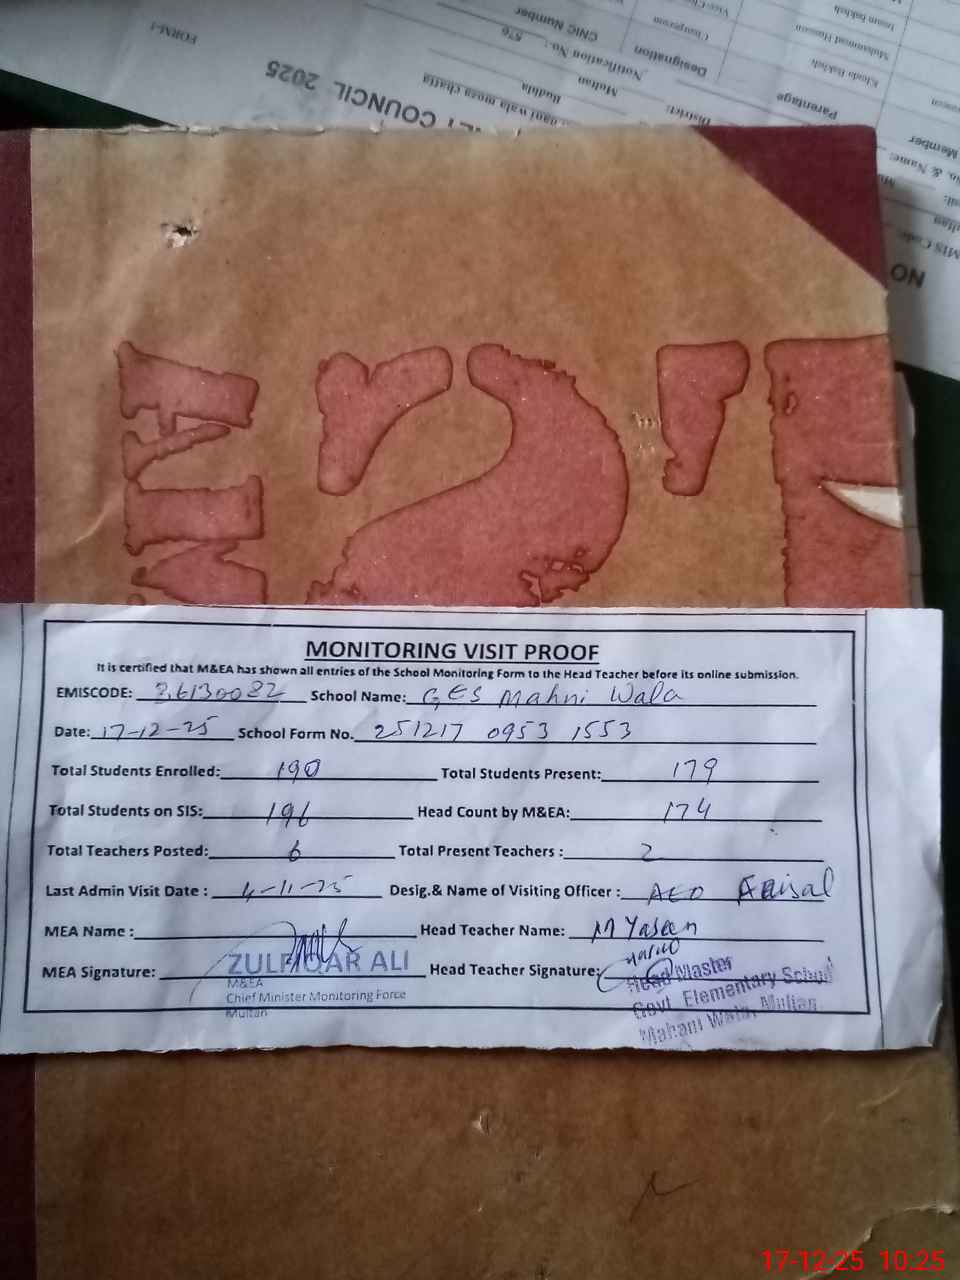 FORM-1
CIL COUNCIL 2025
nani wala moza chatta
Budhla
Multan
Notification No.: 576
CNIC Number
District:
Designation
Chairperson
Parentage
Khuda Bakhsh
Muhammad Hussain
Imam Bakhsh
Member
No. & Name:
EMIS Code:
NO
MONITORING VISIT PROOF
It is certified that M&EA has shown all entries of the School Monitoring Form to the Head Teacher before its online submission.
EMISCODE: 36130082 School Name: GES Mahni Wala
Date: 17-12-25 School Form No. 251217 0953 1553
Total Students Enrolled: 190 Total Students Present: 179
Total Students on SIS: 196 Head Count by M&EA: 174
Total Teachers Posted: 6 Total Present Teachers : 2
Last Admin Visit Date : 4-11-25 Desig.& Name of Visiting Officer : AEO Faisal
MEA Name : Head Teacher Name: M Yaseen
MEA Signature: ZULFIQAR ALI Head Teacher Signature: Head Master
M&EA
Chief Minister Monitoring Force
Multan
Govt. Elementary School
Mahani Wala, Multan
17-12-25 10:25